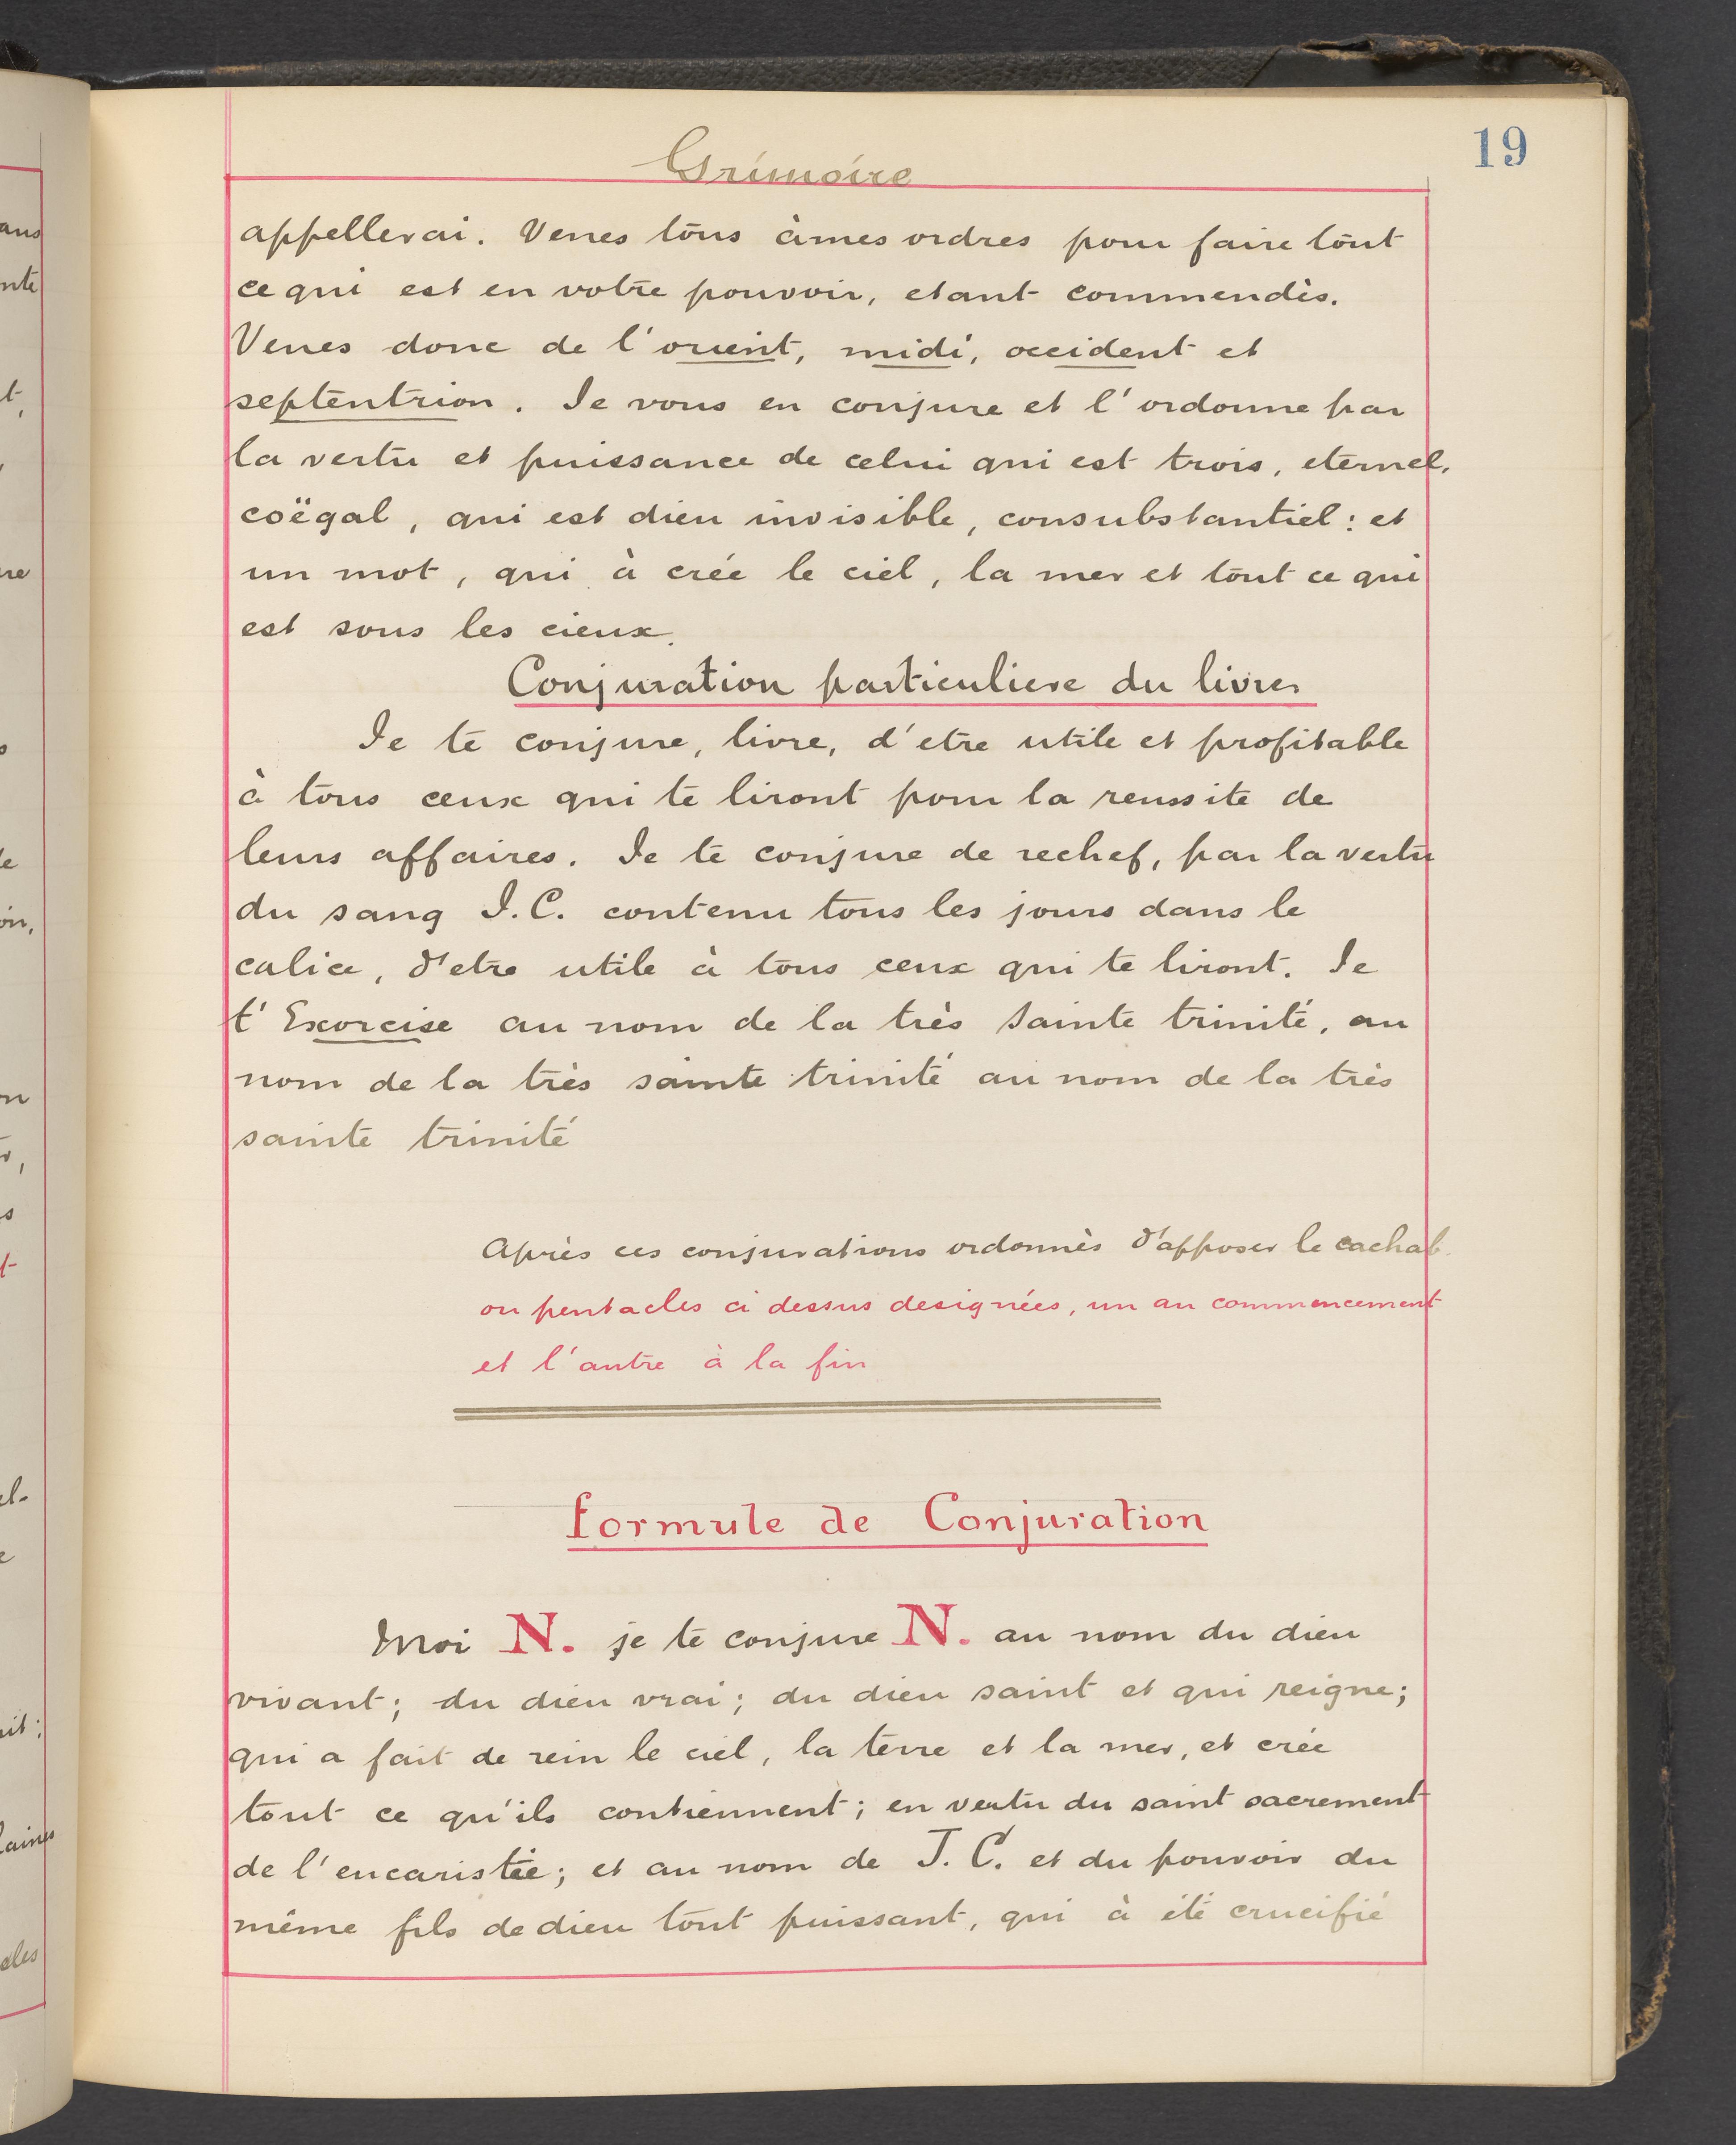 19
Grimoire
appellerai. Venes tōus àmes ordres pour faire tōut
ce qui est en votre pouvoir, etant commendès.
Venes donc de l'orient, midi, occident et
septentrion. Je vous en conjure et l'ordonne par
la vertu et puissance de celui qui est trois, eternel,
coëgal, qui est dieu invisible, consubstantiel: et
un mot, qui à crée le ciel, la mer et tōut ce qui
est sous les cieux.
Conjuration particuliere du livre
Je te conjure, livre, d'etre utile et profitable
à tous ceux qui te liront pour la reussite de
leurs affaires. Je te conjure de rechef, par la vertu
du sang J.C. contenu tous les jours dans le
calice, d'etre utile à tous ceux qui te liront. Je
t'Exorcise au nom de la très sainte trinité, au
nom de la très sainte trinité au nom de la très
sainte trinité
Après ces conjurations ordonnès d'apposer le cachat
ou pentacles ci dessus designées, un au commencement
et l'autre à la fin
formule de Conjuration
Moi N. je te conjure N. au nom du dieu
vivant; du dieu vrai; du dieu saint et qui reigne;
qui a fait de rein le ciel, la terre et la mer, et crée
tout ce qu'ils contiennent; en vertu du saint sacrement
de l'eucaristie; et au nom de J.C. et du pouvoir du
même fils de dieu tōut puissant, qui à été crucifié